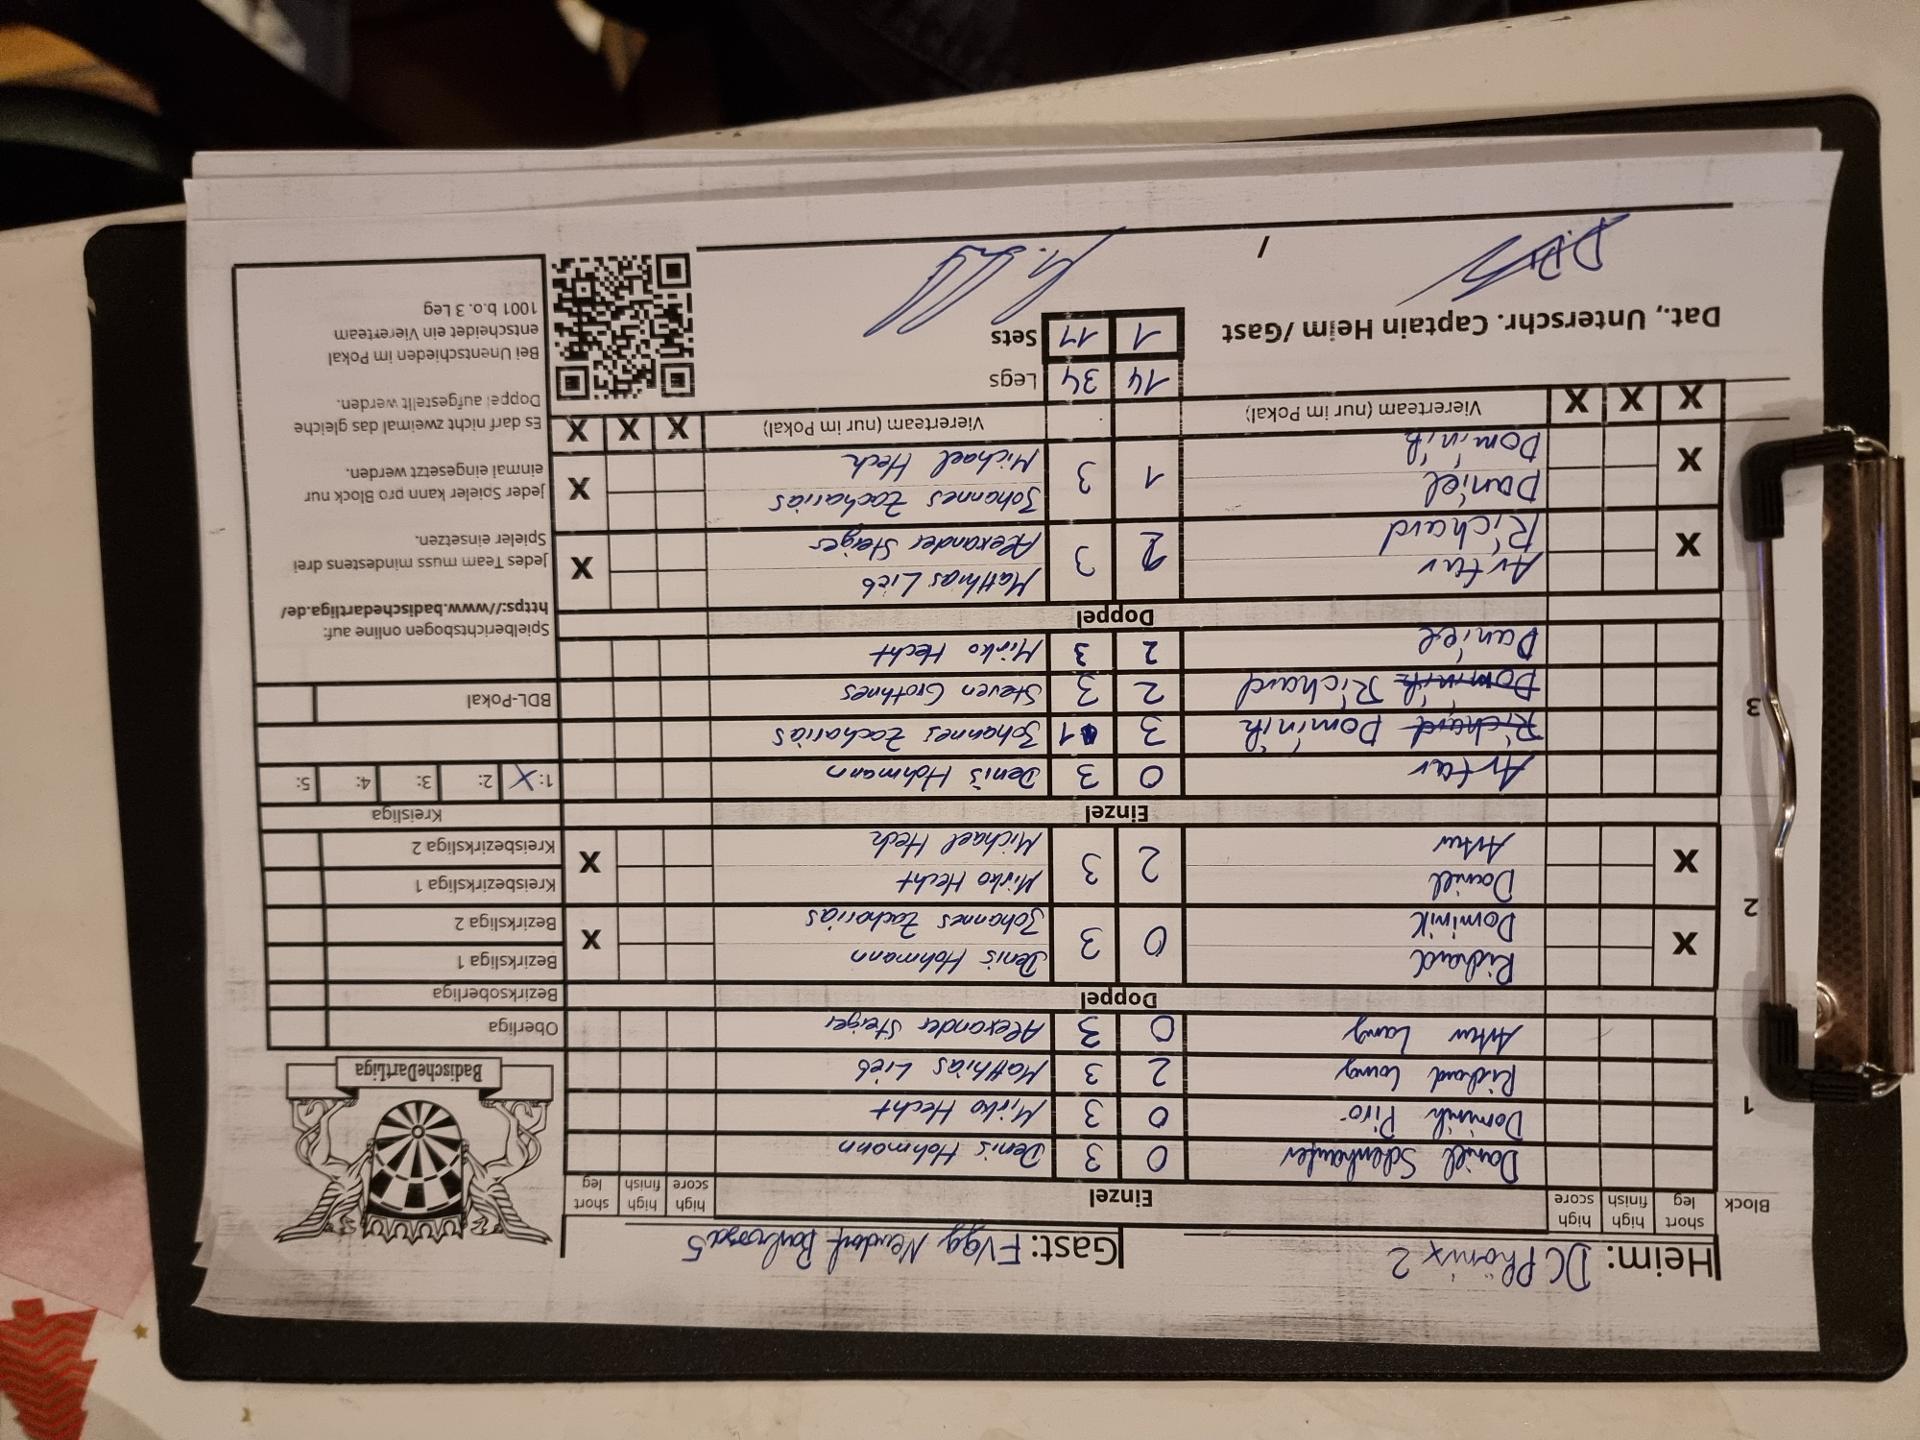 Heim: DC Phönix 2
Gast: FVgg Neudorf 5
Block
short leg
high finish
high score
Einzel
high score
high finish
short leg
1
Daniel 0 3 Denis Hohmann
Dominik Piro 0 3 Mirko Hecht
Richard 2 3 Matthias Lieb
Artur 0 3 Alexander Steiger
Doppel
2
X Richard 0 3 Denis Hohmann X
Dominik Johannes Zacharias
X Daniel 2 3 Mirko Hecht X
Artur Michael Hech
Einzel
3
Artur 0 3 Denis Hohmann
Richard Dominik 3 1 Johannes Zacharias
Dominik Richard 2 3 Steven Grothnes
Daniel 2 3 Mirko Hecht
Doppel
X Artur 2 3 Matthias Lieb X
Richard Alexander Steiger
X Daniel 1 3 Johannes Zacharias X
Dominik Michael Hech
X X X Viererteam (nur im Pokal) Viererteam (nur im Pokal) X X X
14 34 Legs
1 11 Sets
Dat., Unterschr. Captain Heim / Gast
/
BadischeDartLiga
Oberliga
Bezirksoberliga
Bezirksliga 1
Bezirksliga 2
Kreisbezirksliga 1
Kreisbezirksliga 2
Kreisliga
1: X 2: 3: 4: 5:
BDL-Pokal
Spielberichtsbogen online auf:
https://www.badischedartliga.de/
Jedes Team muss mindestens drei
Spieler einsetzen.
Jeder Spieler kann pro Block nur
einmal eingesetzt werden.
Es darf nicht zweimal das gleiche
Doppel aufgestellt werden.
Bei Unentschieden im Pokal
entscheidet ein Viererteam
1001 b.o. 3 Leg